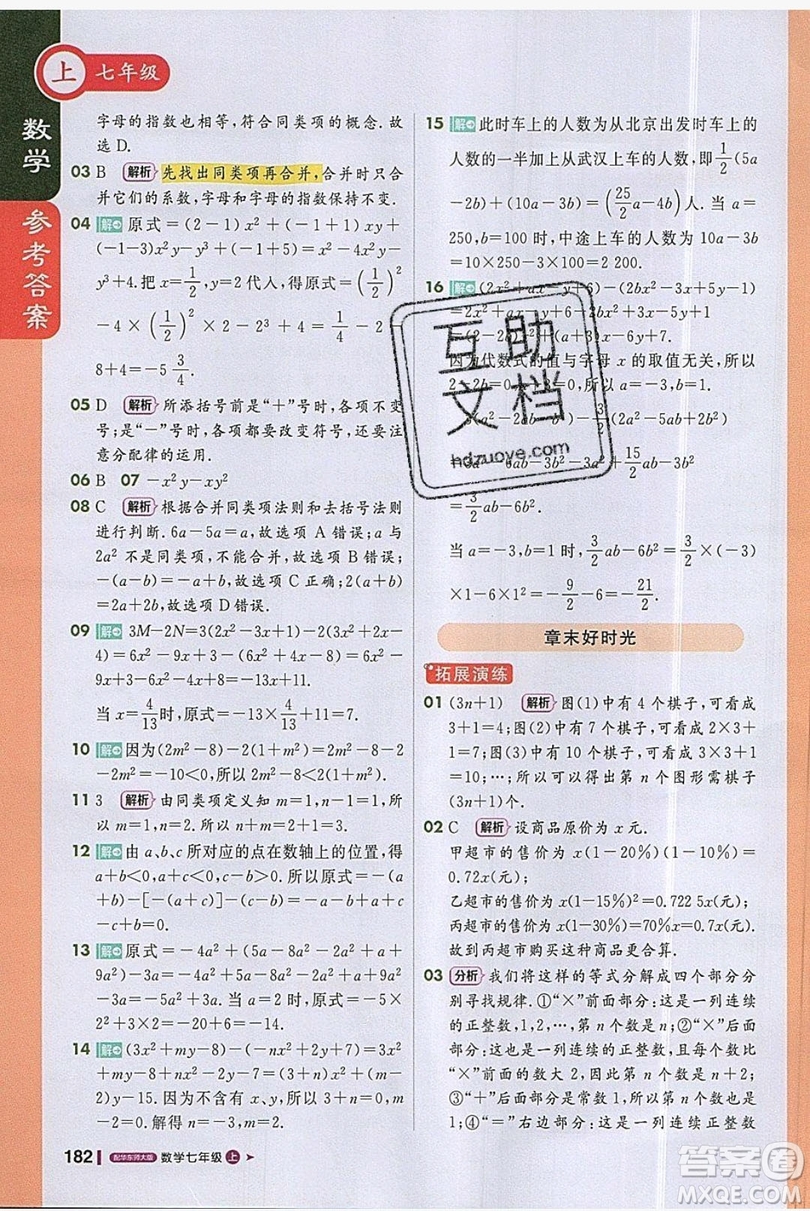 上 七年级
数学
参考答案
字母的指数也相等,符合同类项的概念.故
选 D.
03 B 解析 先找出同类项再合并,合并时只合
并它们的系数,字母和字母的指数保持不变.
04 解 原式=(2-1)x²+(-1+1)xy+
(-1-3)x²y-y³+(-1+5)=x²-4x²y-
y³+4.把 x=1/2,y=2代入,得原式=(1/2)²
-4×(1/2)²×2-2³+4=1/4-2-
8+4=-5 3/4.
05 D 解析 所添括号前是“+”号时,各项不变
号;是“-”号时,各项都要改变符号,还要注
意分配律的运用.
06 B 07 -x²y-xy²
08 C 解析 根据合并同类项法则和去括号法则
进行判断.6a-5a=a,故选项 A 错误;a 与
2a² 不是同类项,不能合并,故选项 B 错误;
-(a-b)=-a+b,故选项 C 正确;2(a+b)
=2a+2b,故选项 D 错误.
09 解 3M-2N=3(2x²-3x+1)-2(3x²+2x
-4)=6x²-9x+3-6x²-4x+8=-13x+11.
当 x=4/13时,原式=-13×4/13+11=7.
10 解 因为(2m²-8)-2(1+m²)=2m²-8-2
-2m²=-10<0,所以 2m²-8<2(1+m²).
11 3 解析 由同类项定义知 m=1,n-1=1,所
以 m=1,n=2.所以 m+n=2+1=3.
12 解 由 a、b、c 所对应的点在数轴上的位置,得
a+b<0,a-c<0,b-c>0.所以原式=-(a
+b)-[-(a-c)]+(b-c)=-a-b+a-c
+b-c=-2c.
13 解 原式=-4a²+(5a-8a²-2a²+a+
9a²-3a)=-4a²+5a-8a²-2a²+a+9a²
-3a=-5a²+3a.当 a=2 时,原式=-5×
2²+3×2=-20+6=-14.
14 解 (3x²+my-8)-(-nx²+2y+7)=3x²
+my-8+nx²-2y-7=(3+n)x²+(m-
2)y-15.因为不含有 x、y,所以 3+n=0,m
-2=0.解得 n=-3,m=2.
15 解 此时车上的人数为从北京出发时车上的
人数的一半加从武汉上车的人数,即1/2(5a
-2b)+(10a-3b)=(25/2a-4b)人.当 a=
250,b=100 时,中途上车的人数为 10a-3b
=10×250-3×100=2 200.
16 解 (2x²+ax-y+6)-(2bx²-3x+5y-1)
=2x²+ax-y+6-2bx²+3x-5y+1
=(2-
因为代数式的值与字母 x 的取值无关,所以
2-2b=0
-(2a²-5ab+2b²)
6ab-6b²-3a²+15/2ab
=3/2ab-6b².
当 a=-3,b=1 时,3/2ab-6b²=3/2×(-3)
×1-6×1²=-9/2-6=-21/2.
章末好时光
拓展演练
01 (3n+1) 解析 图(1)中有 4 个棋子,可看成
3+1=4;图(2)中有 7 个棋子,可看成 2×3+
1=7;图(3)中有 10 个棋子,可看成 3×3+1
=10;…;所以可以得出第 n 个图形需棋子
(3n+1)个.
02 C 解析 设商品原价为 x 元.
甲超市的售价为 x(1-20%)(1-10%)=
0.72x(元);
乙超市的售价为 x(1-15%)²=0.722 5x(元);
丙超市的售价为 x(1-30%)=70%x=0.7x(元).
故到丙超市购买更合算.
03 分析 我们将这样的等式分解成四个部分分
别寻找规律.①“×”前面部分:这是一列连续
的正整数,1,2,…,第 n 个数是 n;②“×”后面
部分:这是一列连续的正整数,且第 n 个数比
“×”前面的数大 2,因此第 n 个数是 n+2;
③“+”后面部分:这是一列不变的数,均为 1;
④“=”右边部分:这是一列连续正整数
182 配华东师大版 数学七年级 上
互助
文档
hdzuoye.com
答案圈
MXQE.COM